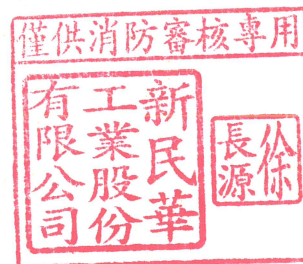 僅供消防審核專用
新民華
工業股份
有限公司
徐
長源